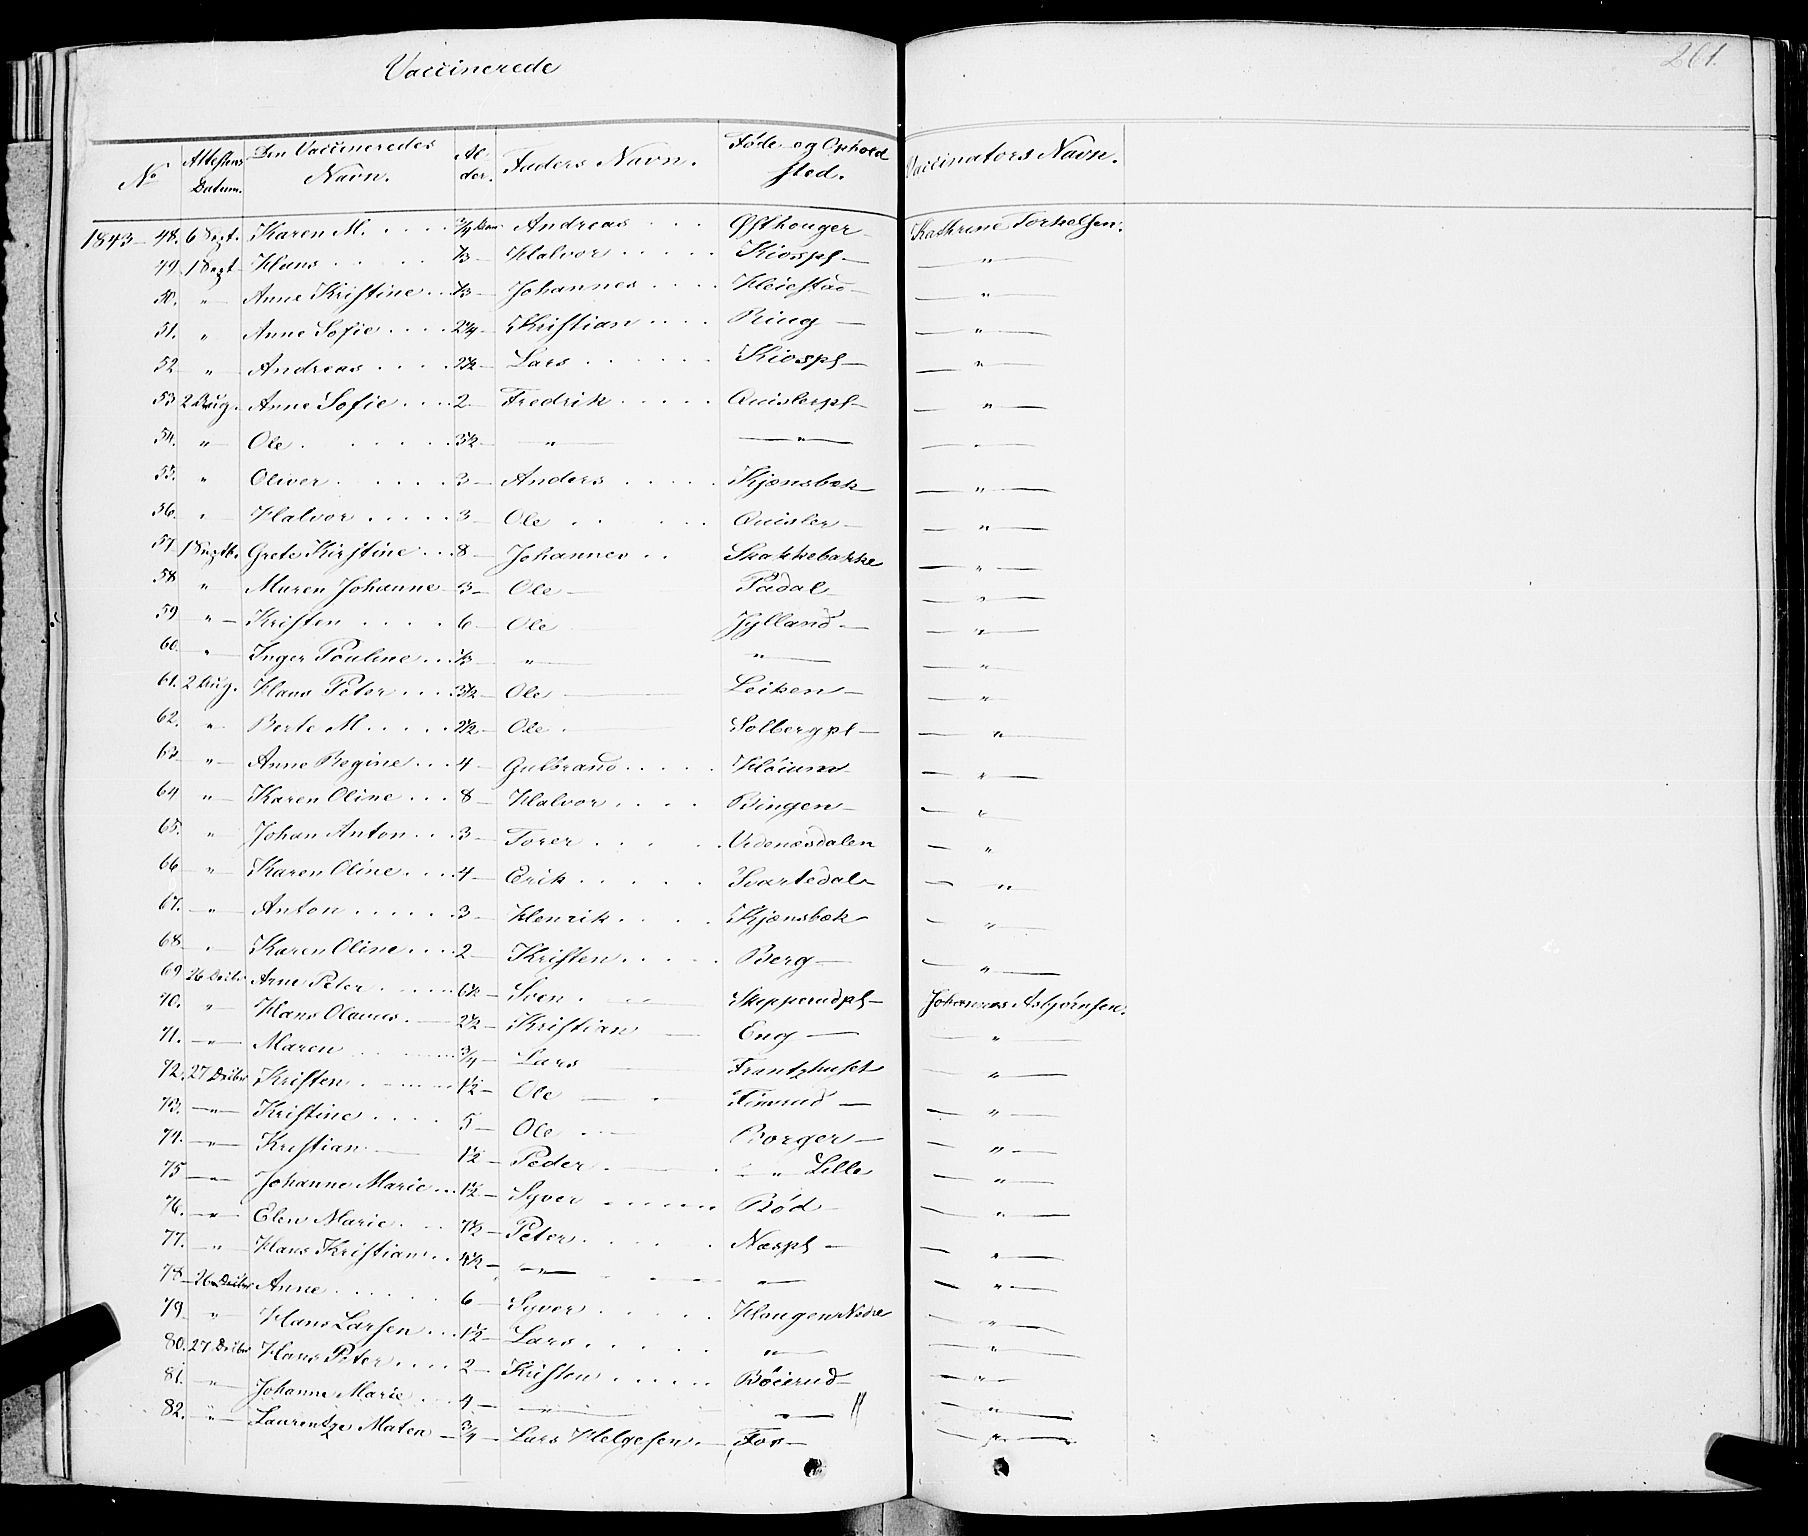 Vaccinerede
261.
No Attestens Datum. Den Vaccineredes Navn. Al-der. Faders Navn. Føde- og Ophold sted. Vaccinators Navn.
1843 48. 6 Sept. Karen M. 3/4 Andreas Østhouger Kathrine Torkelsen.
49 1 Sept Hans 1/3 Halvor Kiospl „
50. „ Anne Kristine 1/3 Johannes Heiestad „
51. „ Anne Sofie 2 1/4 Kristian Ring „
52 „ Andreas 2 1/2 Lars Kiospl „
53 2 Aug. Anne Sofie 2 Fredrik Quislerpl „
54. „ Ole 5 1/2 „ „ „
55. „ Oliver 3 Anders Kjænsbæk „
56. „ Halvor 3 Ole Quisler „
57 1 Septb. Grete Kirstine 8 Johannes Skakkebakke „
58 „ Maren Johanne 3 Ole Padal „
59 „ Kristen 6 Ole Jylland „
60. „ Inger Pouline 1/3 „ „ „
61. 2 Aug. Hans Peter 3 1/2 Ole Leiken „
62. „ Berte M. 2 1/2 Ole Solbergpl „
63 „ Anne Regine 4 Gulbrand Høium „
64 „ Karen Oline 8 Halvor Bingen „
65. „ Johan Anton 3 Torer Vedenæsdalen „
66 „ Karen Oline 4 Erik Svartedal „
67. „ Anton 3 Henrik Kjænsbæk „
68 „ Karen Oline 2 Kristen Berg „
69 26 Decbr Arne Peter 6 1/2 Sven Skepperudpl Johannes Asbjørnsen.
70. „ Hans Olaves 2 1/2 Kristian Eng „
71. „ Maren 3/4 Lars Frantzhuset „
72. 27 Decbr Kristen 1 1/2 Ole Fimrud „
73. „ Kristine 5 Ole Borger „
74. „ Kristian 1 1/2 Peder „ Lille „
75 „ Johanne Marie 1 1/2 Syver Bød „
76. „ Elen Marie 7 1/2 Peter Næspl „
77. „ Hans Kristian 4 1/2 „ „ „
78 26 Decbr Anne 6 Syver Haugen Nedre „
79 „ Hans Larsen 1 1/2 Lars „ „
80. 27 Decbr Hans Peter 2 Kristen Bøierud „
81. „ Johanne Marie 4 „ „ „
82. „ Laurentze Matea 3/4 Lars Helgesen Fos „